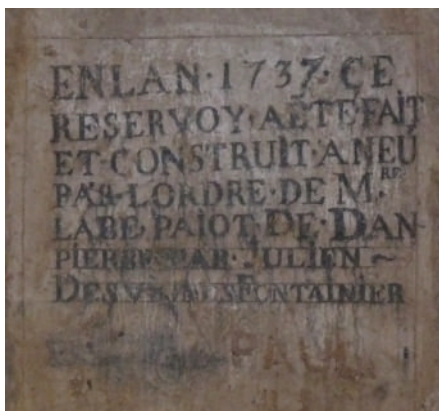 ENLAN·1737·CE
RESERVOY·AÉTÉ·FAIT
ET·CONSTRUIT·ANEÜ
PAR·LORDRE·DE·M.RE
LABE·PAIOT·DE·DAN-
PIERRE·PAR·JULIEN~
FONTAINIER
PAUL